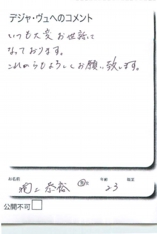 デジャ・ヴュへのコメント
いつも大変お世話に
なっております。
これからもよろしくお願い致します。
お名前 年齢 職業
23
公開不可